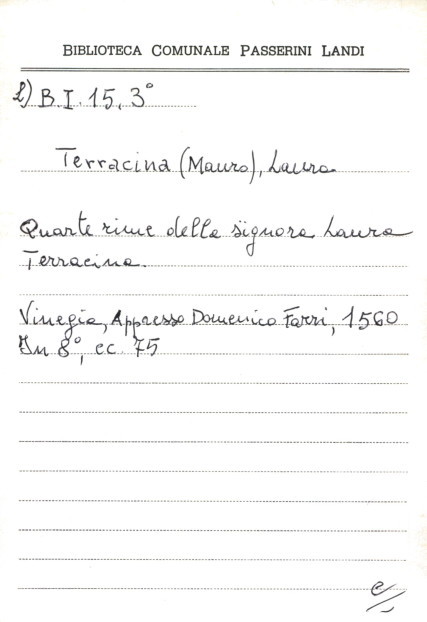 BIBLIOTECA COMUNALE PASSERINI LANDI
L) B.I. 15, 3°
Terracina (Mauro), Laura
Quarte rime della signora Laura
Terracina.
Vinegia, Appresso Domenico Farri, 1560
In 8°, cc. 75